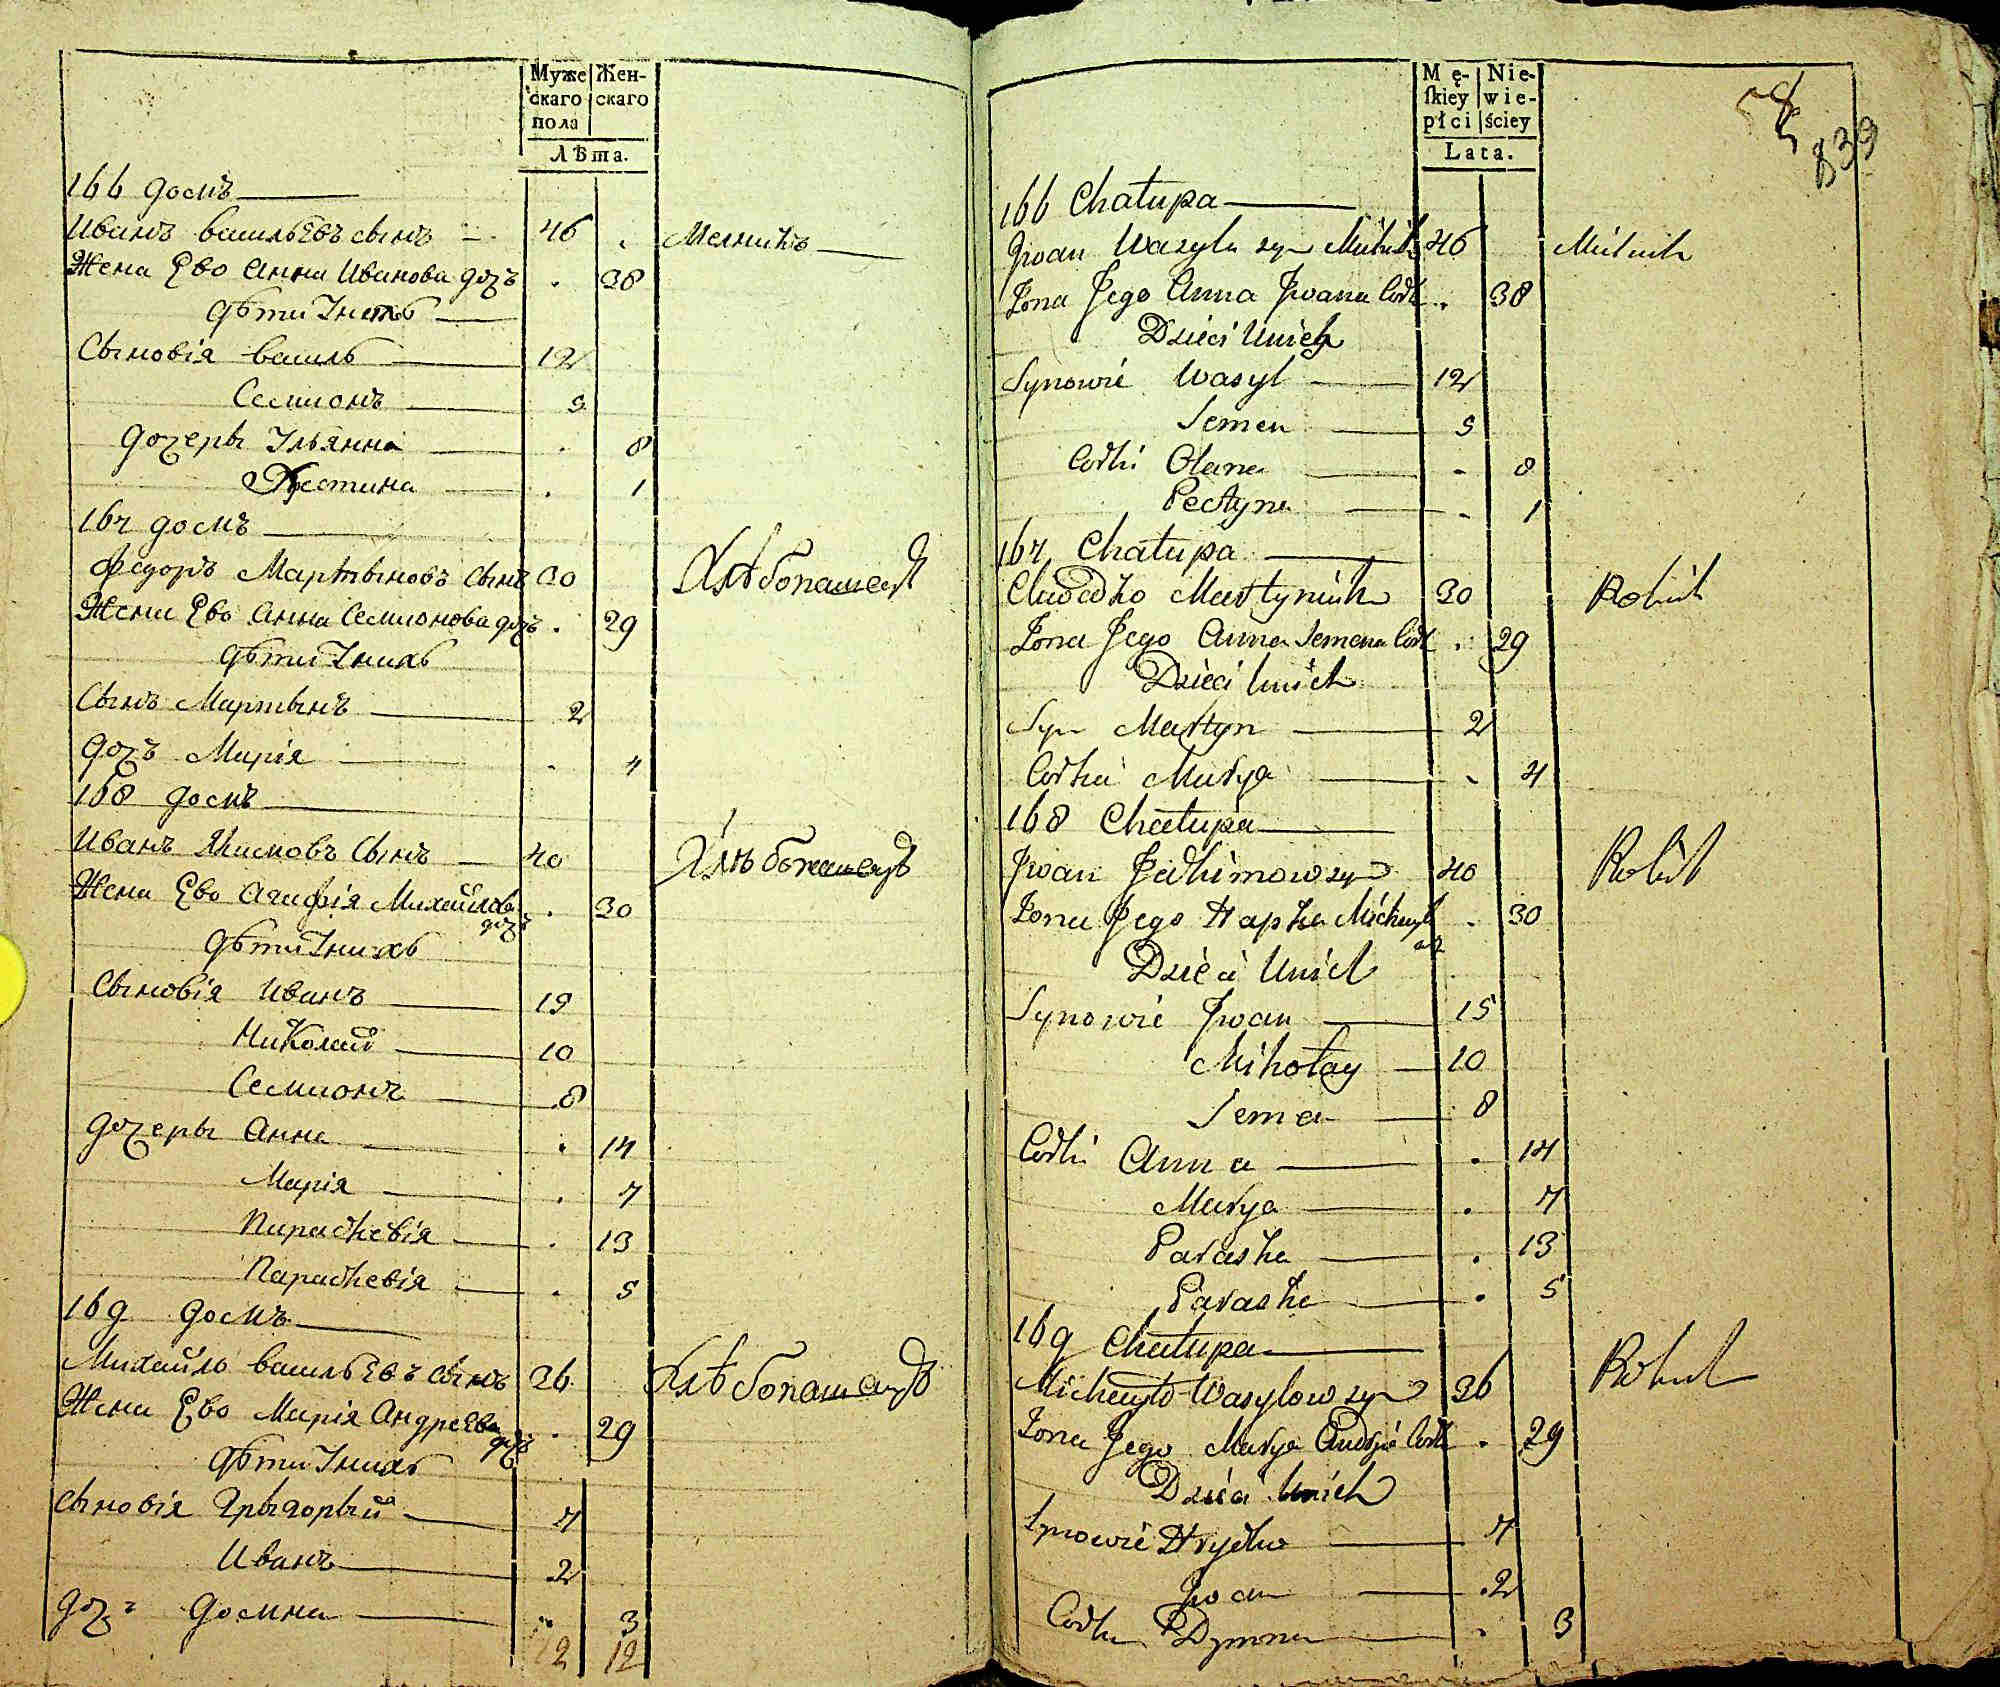 Муже Жен-
скаго скаго
пола
Лѣта.
166 домъ
Иванъ васильевъ сынъ 46 Мелникъ
Жена Ево Анна Иванова дочъ 38
дѣти Ихъ
Сыновія василь 12
Семионъ 5
дочеры Ульянна 8
Устина 1
167 домъ
Федоръ Мартыновъ Сынъ 30 Хлѣбопашецъ
Жена Ево Анна Семионова дочъ 29
дѣти Ихъ
Сынъ Мартынъ 2
дочъ Марія 4
168 домъ
Иванъ Якимовъ Сынъ 40 Хлѣбопашецъ
Жена Ево Агафія Михайлова дочъ 30
дѣти Ихъ
Сыновія Иванъ 15
Николай 10
Семионъ 8
дочеры Анна 14
Марія 7
Параскевія 13
Параскевія 5
169 домъ
Михайло васильевъ сынъ 36 Хлѣбопашецъ
Жена Ево Марія Андреева дочъ 29
дѣти Ихъ
сыновія Грыгорый 7
Иванъ 2
дочъ домна 3
12 12
Mę- Nie-
skiey wie-
płci ściey
Lata.
839
166 Chałupa
Jwan Wasyla syn Mielnik 46 Mielnik
Żona Jego Anna Jwana Cork 38
Dzieci Unich
Synowie Wasyl 12
Semen 5
Corki Olana 8
1
167 Chałupa
Martyniuk 30 Rolnik
Żona Jego Anna Semena Cork 29
Dzieci Unich
Syn Martyn 2
Corka Marya 4
168 Chałupa
Jwan Jakimow syn 40 Rolnik
Żona Jego Hapka Michayl 30
Dzieci Unich
Synowie Jwan 15
Mikołay 10
Semen 8
Corki Anna 14
Marya 7
Paraska 13
Paraska 5
169 Chałupa
Michayło Wasylow syn 36 Rolnik
Żona Jego Marya Andrzeia Cork 29
Dzieci Unich
Synowie Hryćko 7
Jwan 2
Corka Dymna 3